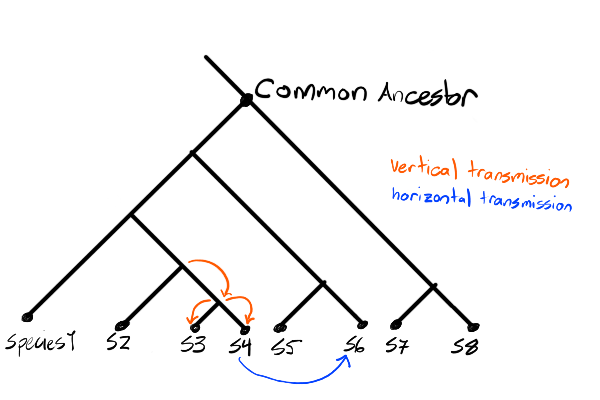 Common Ancestor
vertical transmission
horizontal transmission
Species1 S2 S3 S4 S5 S6 S7 S8